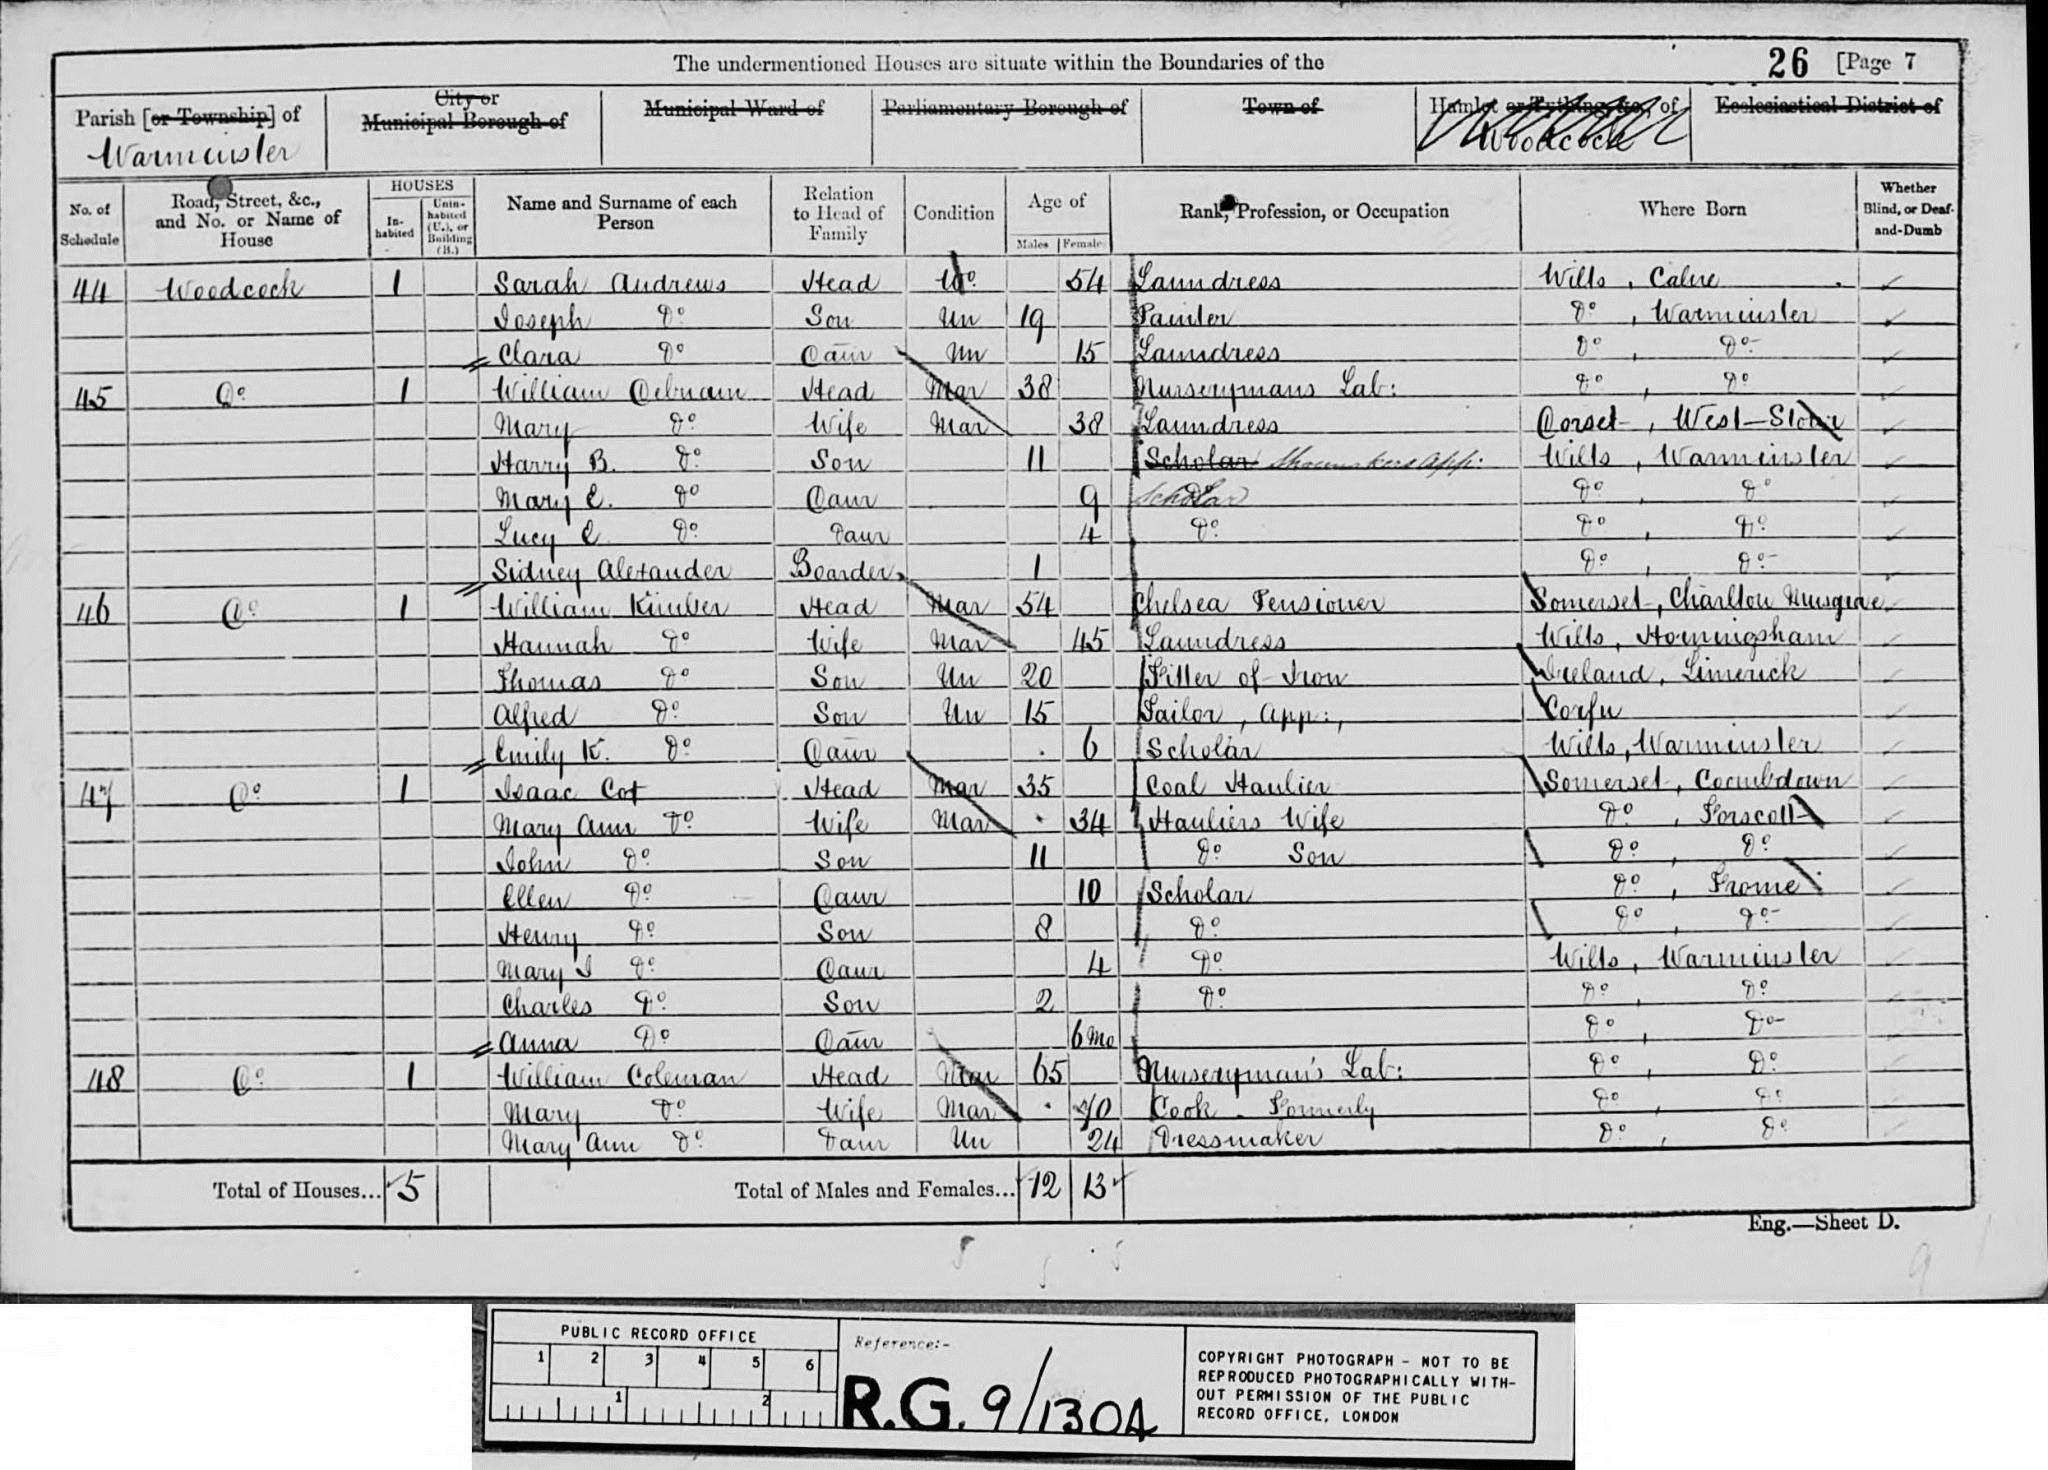 The undermentioned Houses are situate within the Boundaries of the 26 [Page 7
Parish [or Township] of Warminster
City or Municipal Borough of
Municipal Ward of
Parliamentary Borough of
Town of
Hamlet or Tything, &c., of Woodcock
Ecclesiastical District of
No. of Schedule
Road, Street, &c., and No. or Name of House
HOUSES
In-habited
Unin-habited (U.), or Building (B.)
Name and Surname of each Person
Relation to Head of Family
Condition
Age of
Males
Females
Rank, Profession, or Occupation
Where Born
Whether Blind, or Deaf-and-Dumb
44 Woodcock 1 Sarah Andrews Head Wo 54 Laundress Wilts, Calne
Joseph Do Son Un 19 Painter Do, Warminster
Clara Do Daur Un 15 Laundress Do, Do
45 Do 1 William Debnam Head Mar 38 Nurserymans Lab: Do, Do
Mary Do Wife Mar 38 Laundress Dorset, West-Stour
Harry B. Do Son 11 Scholar Shoemakers App: Wilts, Warminster
Mary E. Do Daur 9 Scholar Do Do
Lucy E. Do Daur 4 Do Do, Do
Sidney Alexander Boarder 1 Do, Do
46 Do 1 William Kimber Head Mar 54 Chelsea Pensioner Somerset, Charlton Musgrave
Hannah Do Wife Mar 45 Laundress Wilts, Horningsham
Thomas Do Son Un 20 Fitter of Iron Ireland, Limerick
Alfred Do Son Un 15 Tailor, App:, Corfu
Emily K. Do Daur 6 Scholar Wilts, Warminster
47 Do 1 Isaac Cox Head Mar 35 Coal Haulier Somerset, Coombdown
Mary Ann Do Wife Mar 34 Hauliers Wife Do, Forscott
John Do Son 11 Do Son Do, Do
Ellen Do Daur 10 Scholar Do, Frome
Henry Do Son 8 Do Do, Do
Mary J Do Daur 4 Do Wilts, Warminster
Charles Do Son 2 Do Do, Do
Anna Do Daur 6 Mo Do, Do
48 Do 1 William Coleman Head Mar 65 Nurseryman's Lab: Do, Do
Mary Do Wife Mar 70 Cook - Formerly Do, Do
Mary Ann Do Daur Un 24 Dressmaker Do, Do
Total of Houses... 5 Total of Males and Females... 12 13
Eng.—Sheet D.
PUBLIC RECORD OFFICE
1 2 3 4 5 6
1 2
Reference:-
R.G. 9/1304
COPYRIGHT PHOTOGRAPH - NOT TO BE
REPRODUCED PHOTOGRAPHICALLY WITH-
OUT PERMISSION OF THE PUBLIC
RECORD OFFICE, LONDON